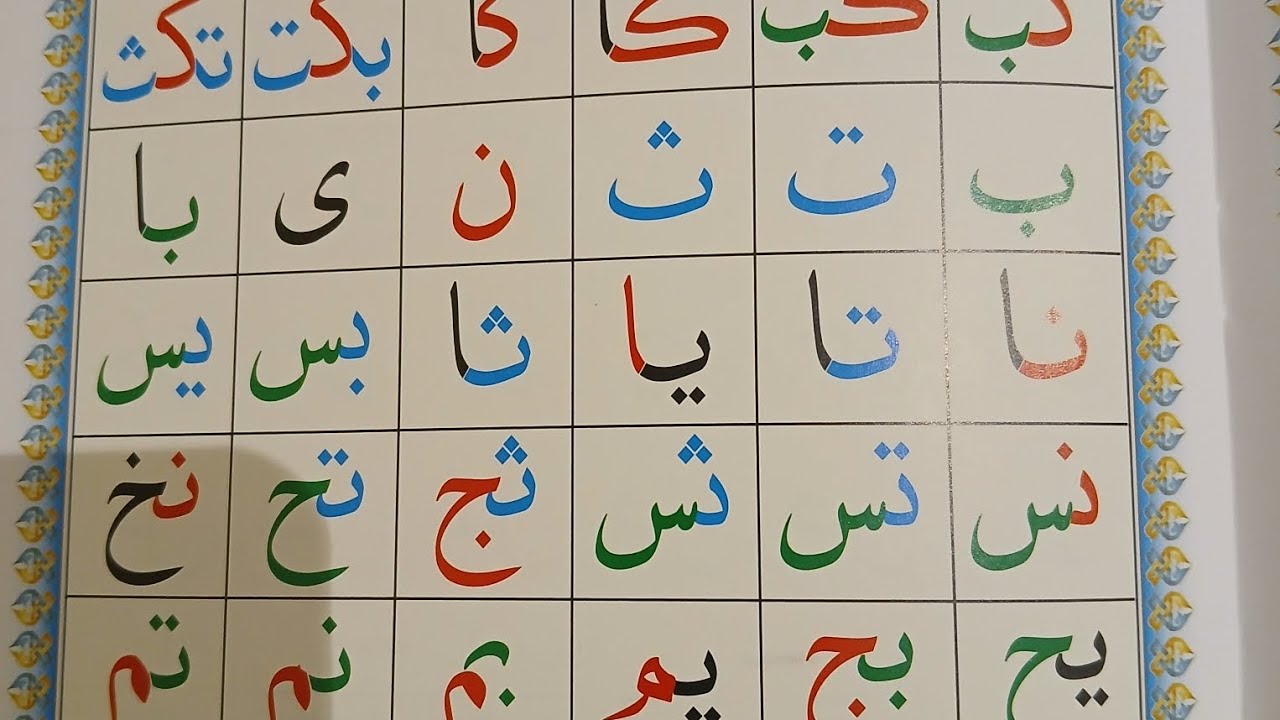 کب کب کا کا بکت تکث
ب ت ث ن ی با
نا تا یا ثا بس یس
نس تس ثس ثج تح نخ
یح بج یم بم نم تم